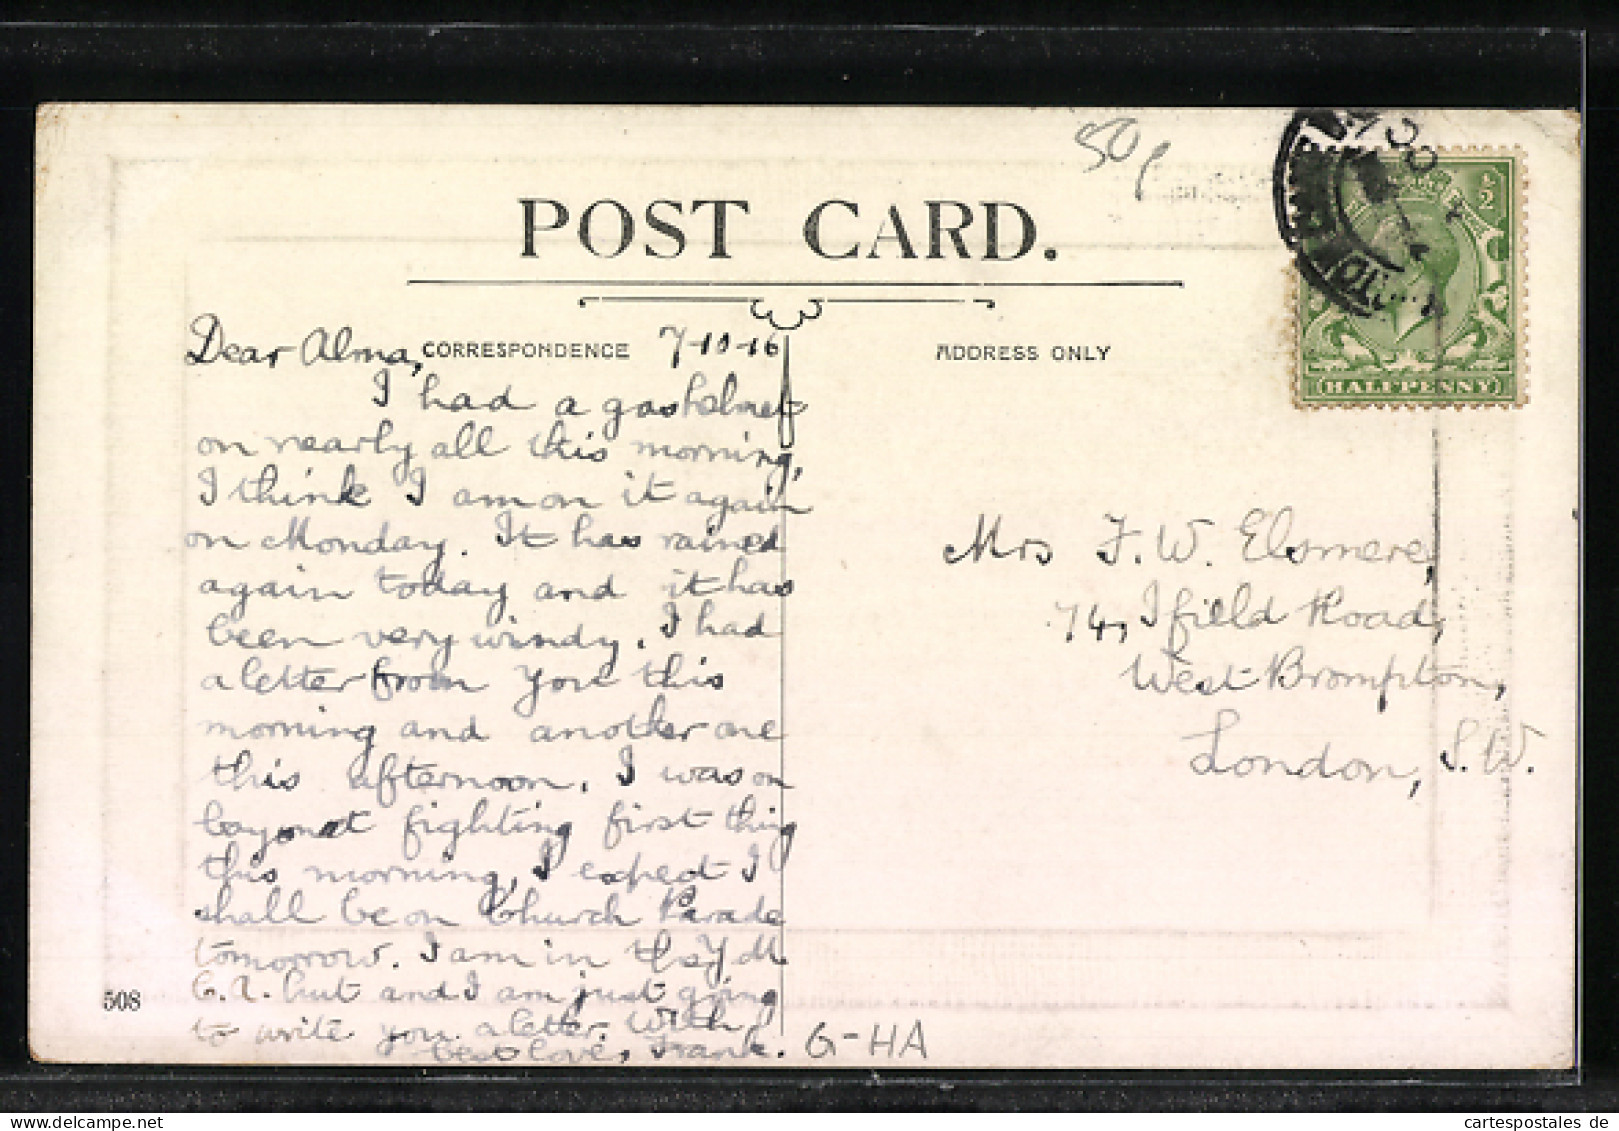 50p
POST CARD.
½
HALFPENNY
CORRESPONDENCE
ADDRESS ONLY
7-10-16
Dear Alma,
I had a gas helmet
on nearly all this morning,
I think I am on it again
on Monday. It has rained
again today and it has
been very windy. I had
a letter from you this
morning and another one
this afternoon. I was on
bayonet fighting first thing
this morning, I expect I
shall be on Church Parade
tomorrow. I am in the Y.M.
C.A. hut and I am just going
to write you a letter. With
best love, Frank.
Mrs F. W. Elsmere,
74, Ifield Road,
West Brompton,
London, S.W.
508
G-HA
cartespostales.de